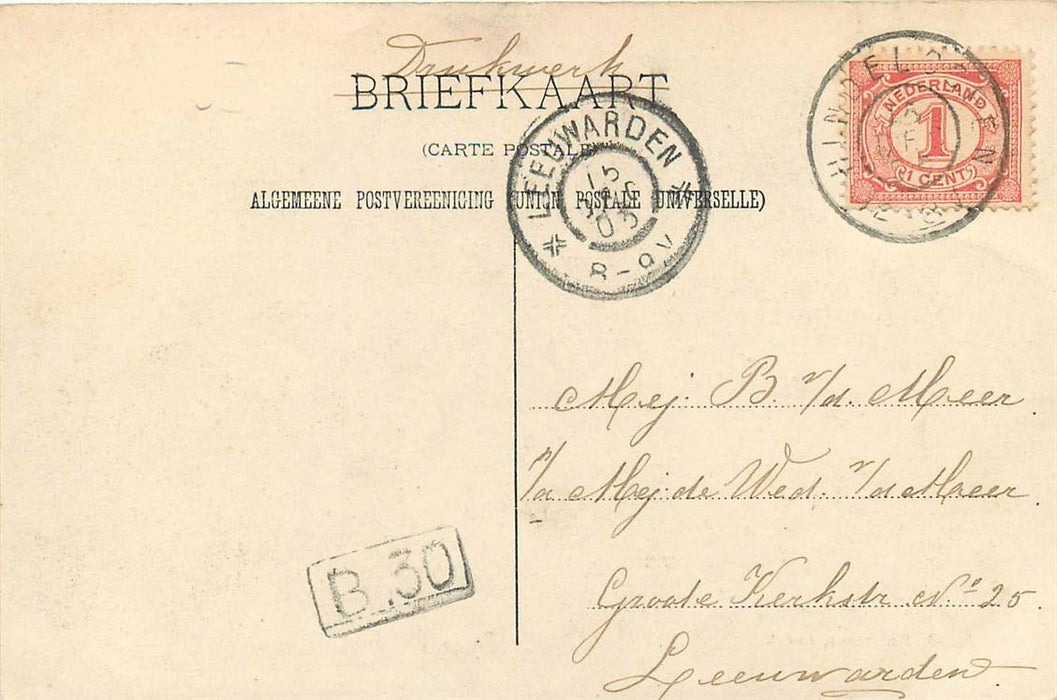 Drukwerk
BRIEFKAART
(CARTE POSTALE)
ALGEMEENE POSTVEREENIGING (UNION POSTALE UNIVERSELLE)
NEDERLAND
1
1 CENT
LEEUWARDEN
8-9V
Mej. B. v/d. Meer
p/a Mej de Wed. v/d Meer
Groote Kerkstr No 25
Leeuwarden
B.30